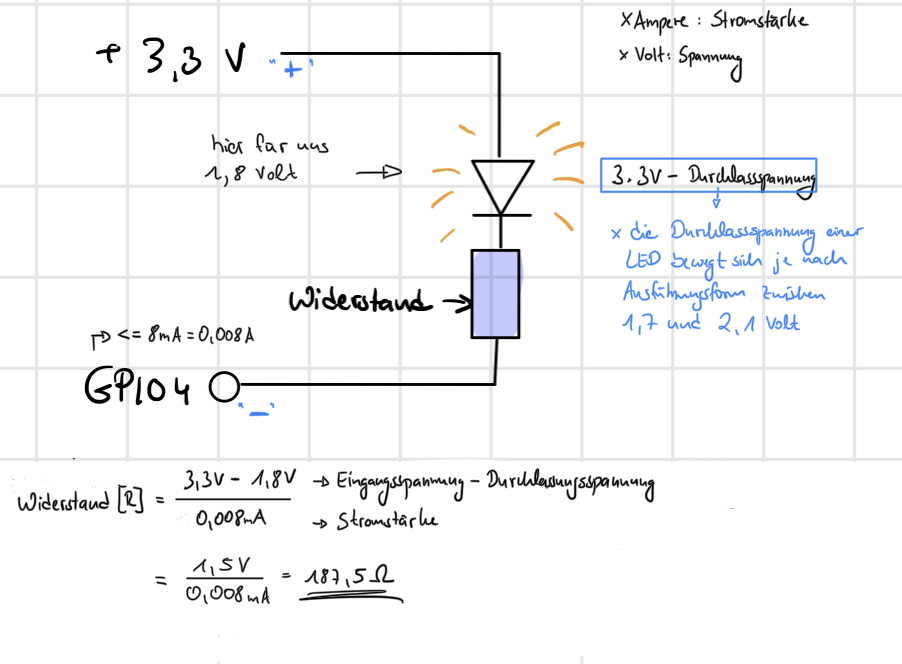 x Ampere : Stromstärke
x Volt: Spannung
+ 3,3 V "+"
hier für uns
1,8 Volt
3.3V - Durchlassspannung
x die Durchlassspannung einer
LED bewegt sich je nach
Ausführungsform zwischen
1,7 und 2,1 Volt
Widerstand
<= 8mA = 0,008A
GPIO4
"-"
Widerstand [R] = 3,3V - 1,8V / 0,008mA
→ Eingangsspannung - Durchlassungsspannung
→ Stromstärke
= 1,5V / 0,008mA = 187,5Ω